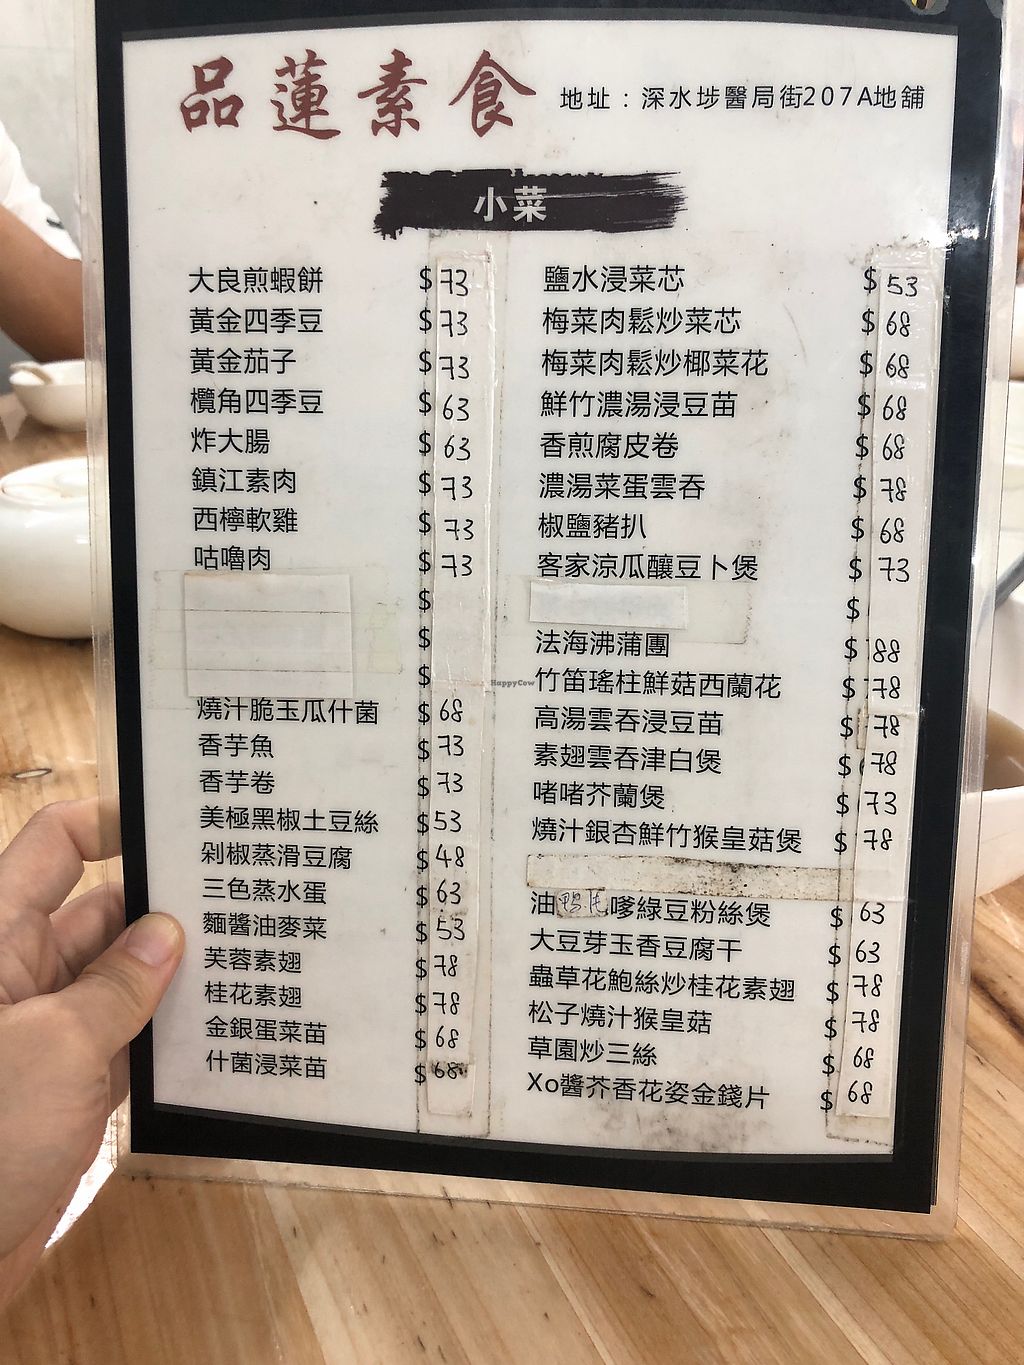 品蓮素食
地址：深水埗醫局街207A地舖
小菜
大良煎蝦餅 $73
黃金四季豆 $73
黃金茄子 $73
欖角四季豆 $63
炸大腸 $63
鎮江素肉 $73
西檸軟雞 $73
咕嚕肉 $73
$
$
$
燒汁脆玉瓜什菌 $68
香芋魚 $73
香芋卷 $73
美極黑椒土豆絲 $53
剁椒蒸滑豆腐 $48
三色蒸水蛋 $63
麵醬油麥菜 $53
芙蓉素翅 $78
桂花素翅 $78
金銀蛋菜苗 $68
什菌浸菜苗 $68
鹽水浸菜芯 $53
梅菜肉鬆炒菜芯 $68
梅菜肉鬆炒椰菜花 $68
鮮竹濃湯浸豆苗 $68
香煎腐皮卷 $68
濃湯菜蛋雲吞 $78
椒鹽豬扒 $68
客家涼瓜釀豆卜煲 $73
$
法海沸蒲團 $88
竹笛瑤柱鮮菇西蘭花 $78
高湯雲吞浸豆苗 $78
素翅雲吞津白煲 $78
啫啫芥蘭煲 $73
燒汁銀杏鮮竹猴皇菇煲 $78
油嗲綠豆粉絲煲 $63
大豆芽玉香豆腐干 $63
蟲草花鮑絲炒桂花素翅 $78
松子燒汁猴皇菇 $78
草園炒三絲 $68
Xo醬芥香花姿金錢片 $68
HappyCow